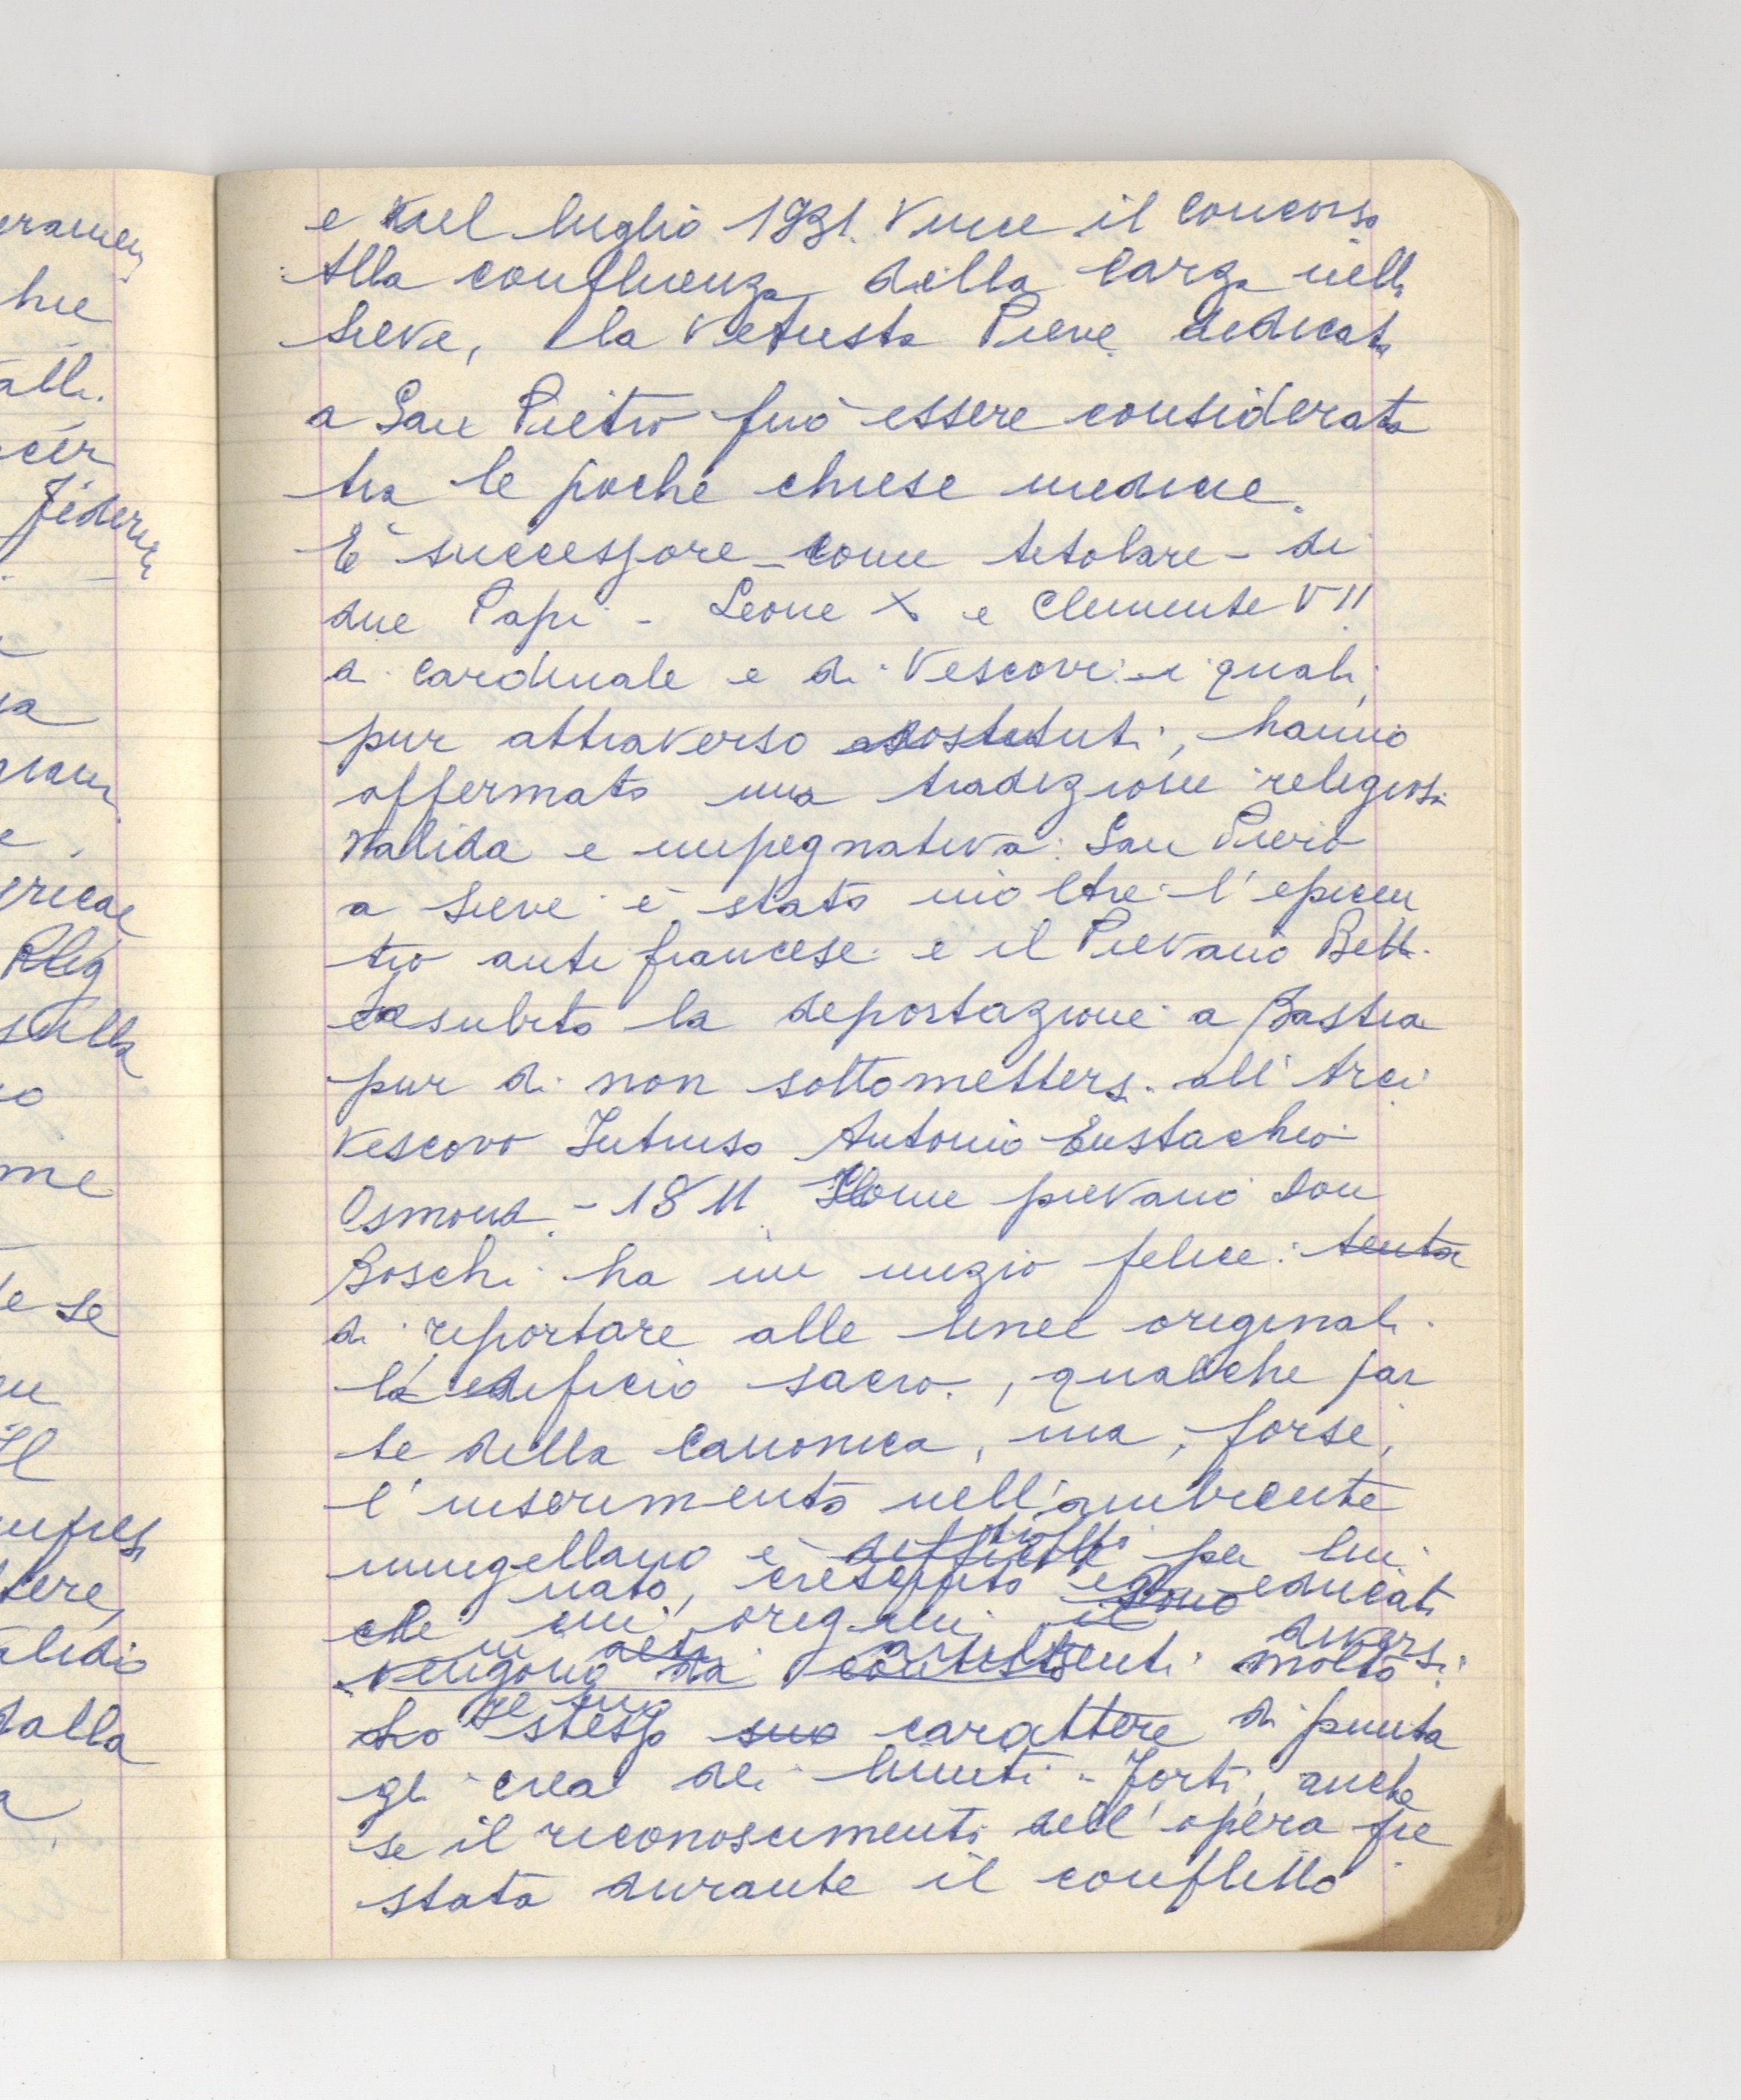 eramen
che
alli.
cer
Federic
ma
gram
e.
erical
Relig
sulla
io
me
le se
Il
impres
tere,
alidio
dalla
a
e nel luglio 1931. Vince il concorso
Alla confluenza della Carza nella
Sieve, la vetusta Pieve dedicata
a San Pietro può essere considerata
tra le poche chiese medicee.
E' successore - come titolare - di
due Papi - Leone X e Clemente VII
di Cardinale e di Vescovi - i quali,
pur attraverso sostituti, hanno
affermato una tradizione religiosa
valida e impegnativa. San Piero
a Sieve è stato inoltre l'epicen
tro anti francese e il Pievano Betti
ha subito la deportazione a Bastia
pur di non sottomettersi all'Arci
vescovo Intruso Antonio Eustachio
Osmond - 1811 Come pievano Don
Boschi ha un inizio felice: tenta
di riportare alle linee originali
l'edificio sacro, qualche par
te della Canonica, ma, forse,
l'inserimento nell'ambiente
mugellano è difficile per lui
nato, cresciuto ed educato
che in origini il sono
in vengono da contesti ambienti molto diversi.
Lo stesso Il suo suo carattere di punta
gli crea dei limiti - Forti, anche
se il riconoscimento dell'opera pre
stata durante il conflitto